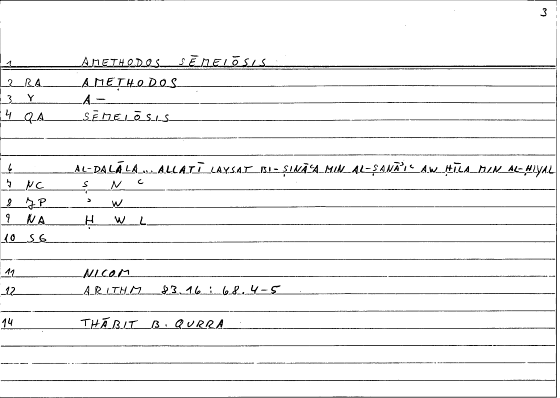 3
1 AMETHODOS SĒMEIŌSIS
2 RA AMETHODOS
3 Y A—
4 QA SĒMEIŌSIS
6 AL-DALĀLA... ALLATĪ LAYSAT BI-ṢINĀʿA MIN AL-ṢANĀʾIʿ AW ḤĪLA MIN AL-ḤIYAL
7 NC Ṣ N ʿ
8 JP ʾ W
9 NA Ḥ W L
10 SG
11 NICOM
12 ARITHM 83.16 : 68.4-5
14 THĀBIT B. QURRA